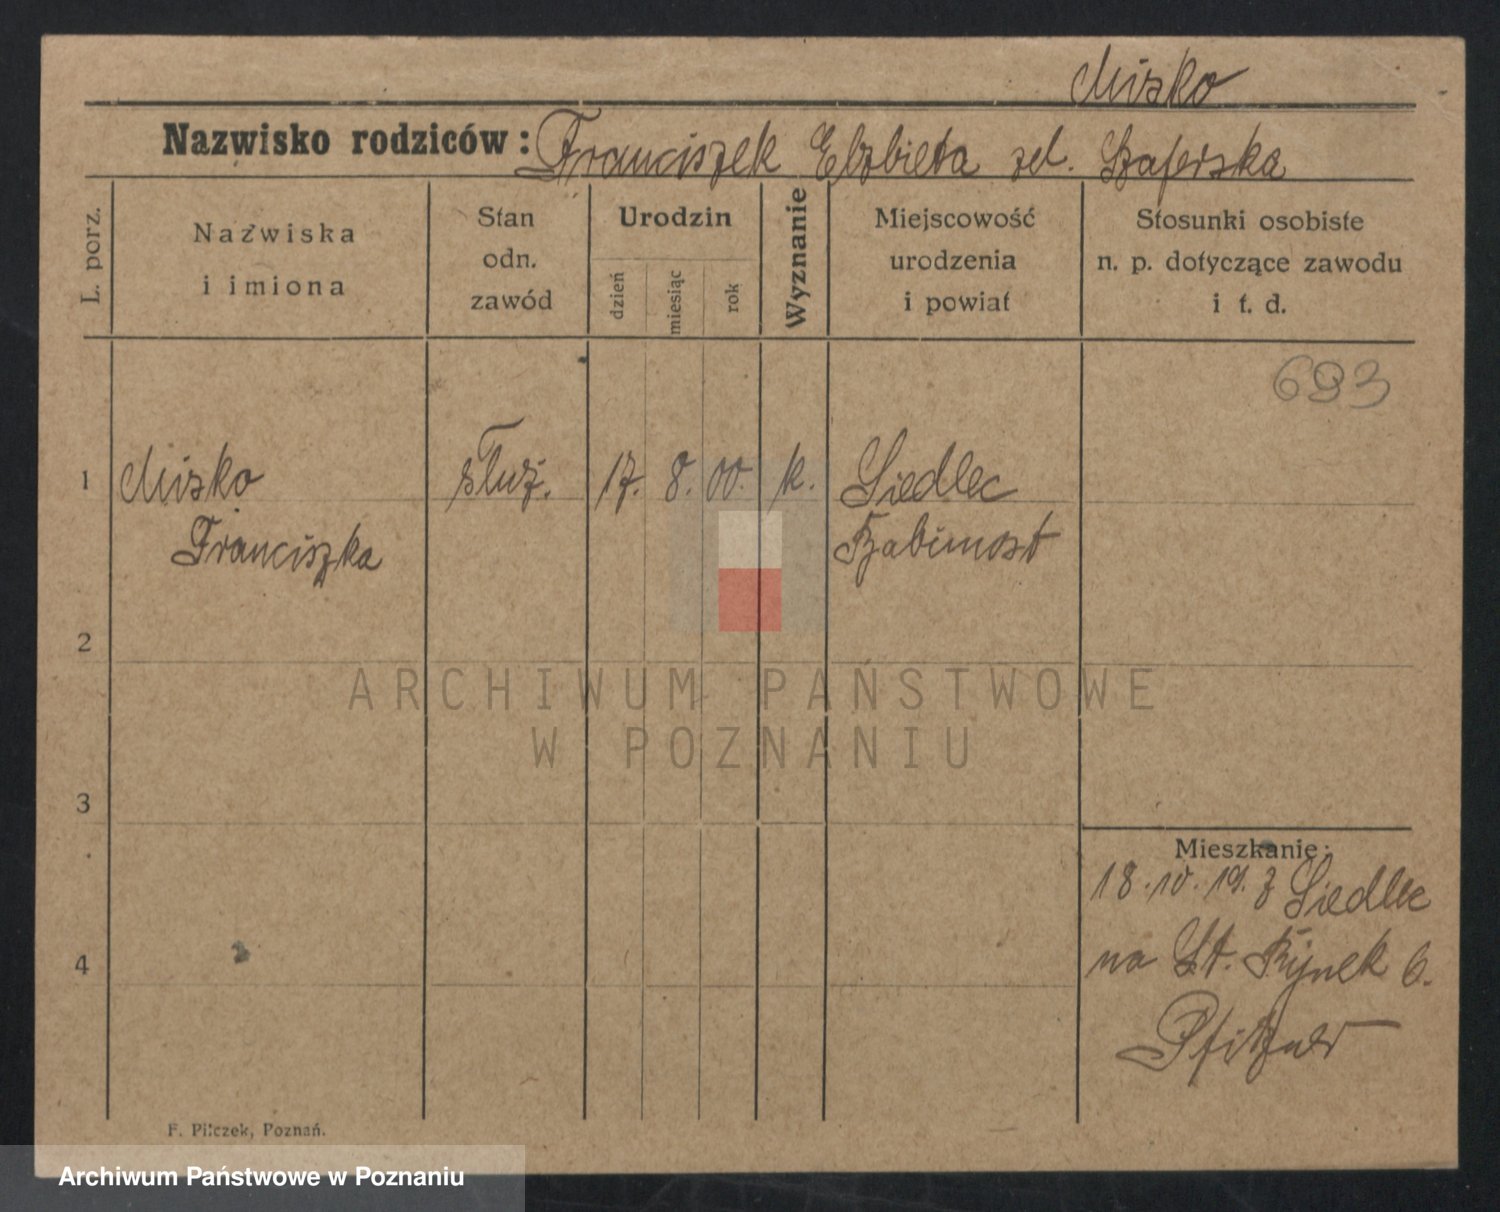 Misko
Nazwisko rodziców: Franciszek Elzbieta zd. Szaferska
L. porz.
Nazwiska
i imiona
Stan
odn.
zawód
Urodzin
dzień
miesiąc
rok
Wyznanie
Miejscowość
urodzenia
i powiat
Stosunki osobiste
n. p. dotyczące zawodu
i t. d.
693
1 Misko służ. 17. 8. 00. k. Siedlec
Franciszka Babimost
2
3
4
Mieszkanie:
18. 10. 19. z Siedlec
na St. Rynek 6.
Pfitzner
F. Pilczek, Poznań.
ARCHIWUM PAŃSTWOWE
W POZNANIU
Archiwum Państwowe w Poznaniu